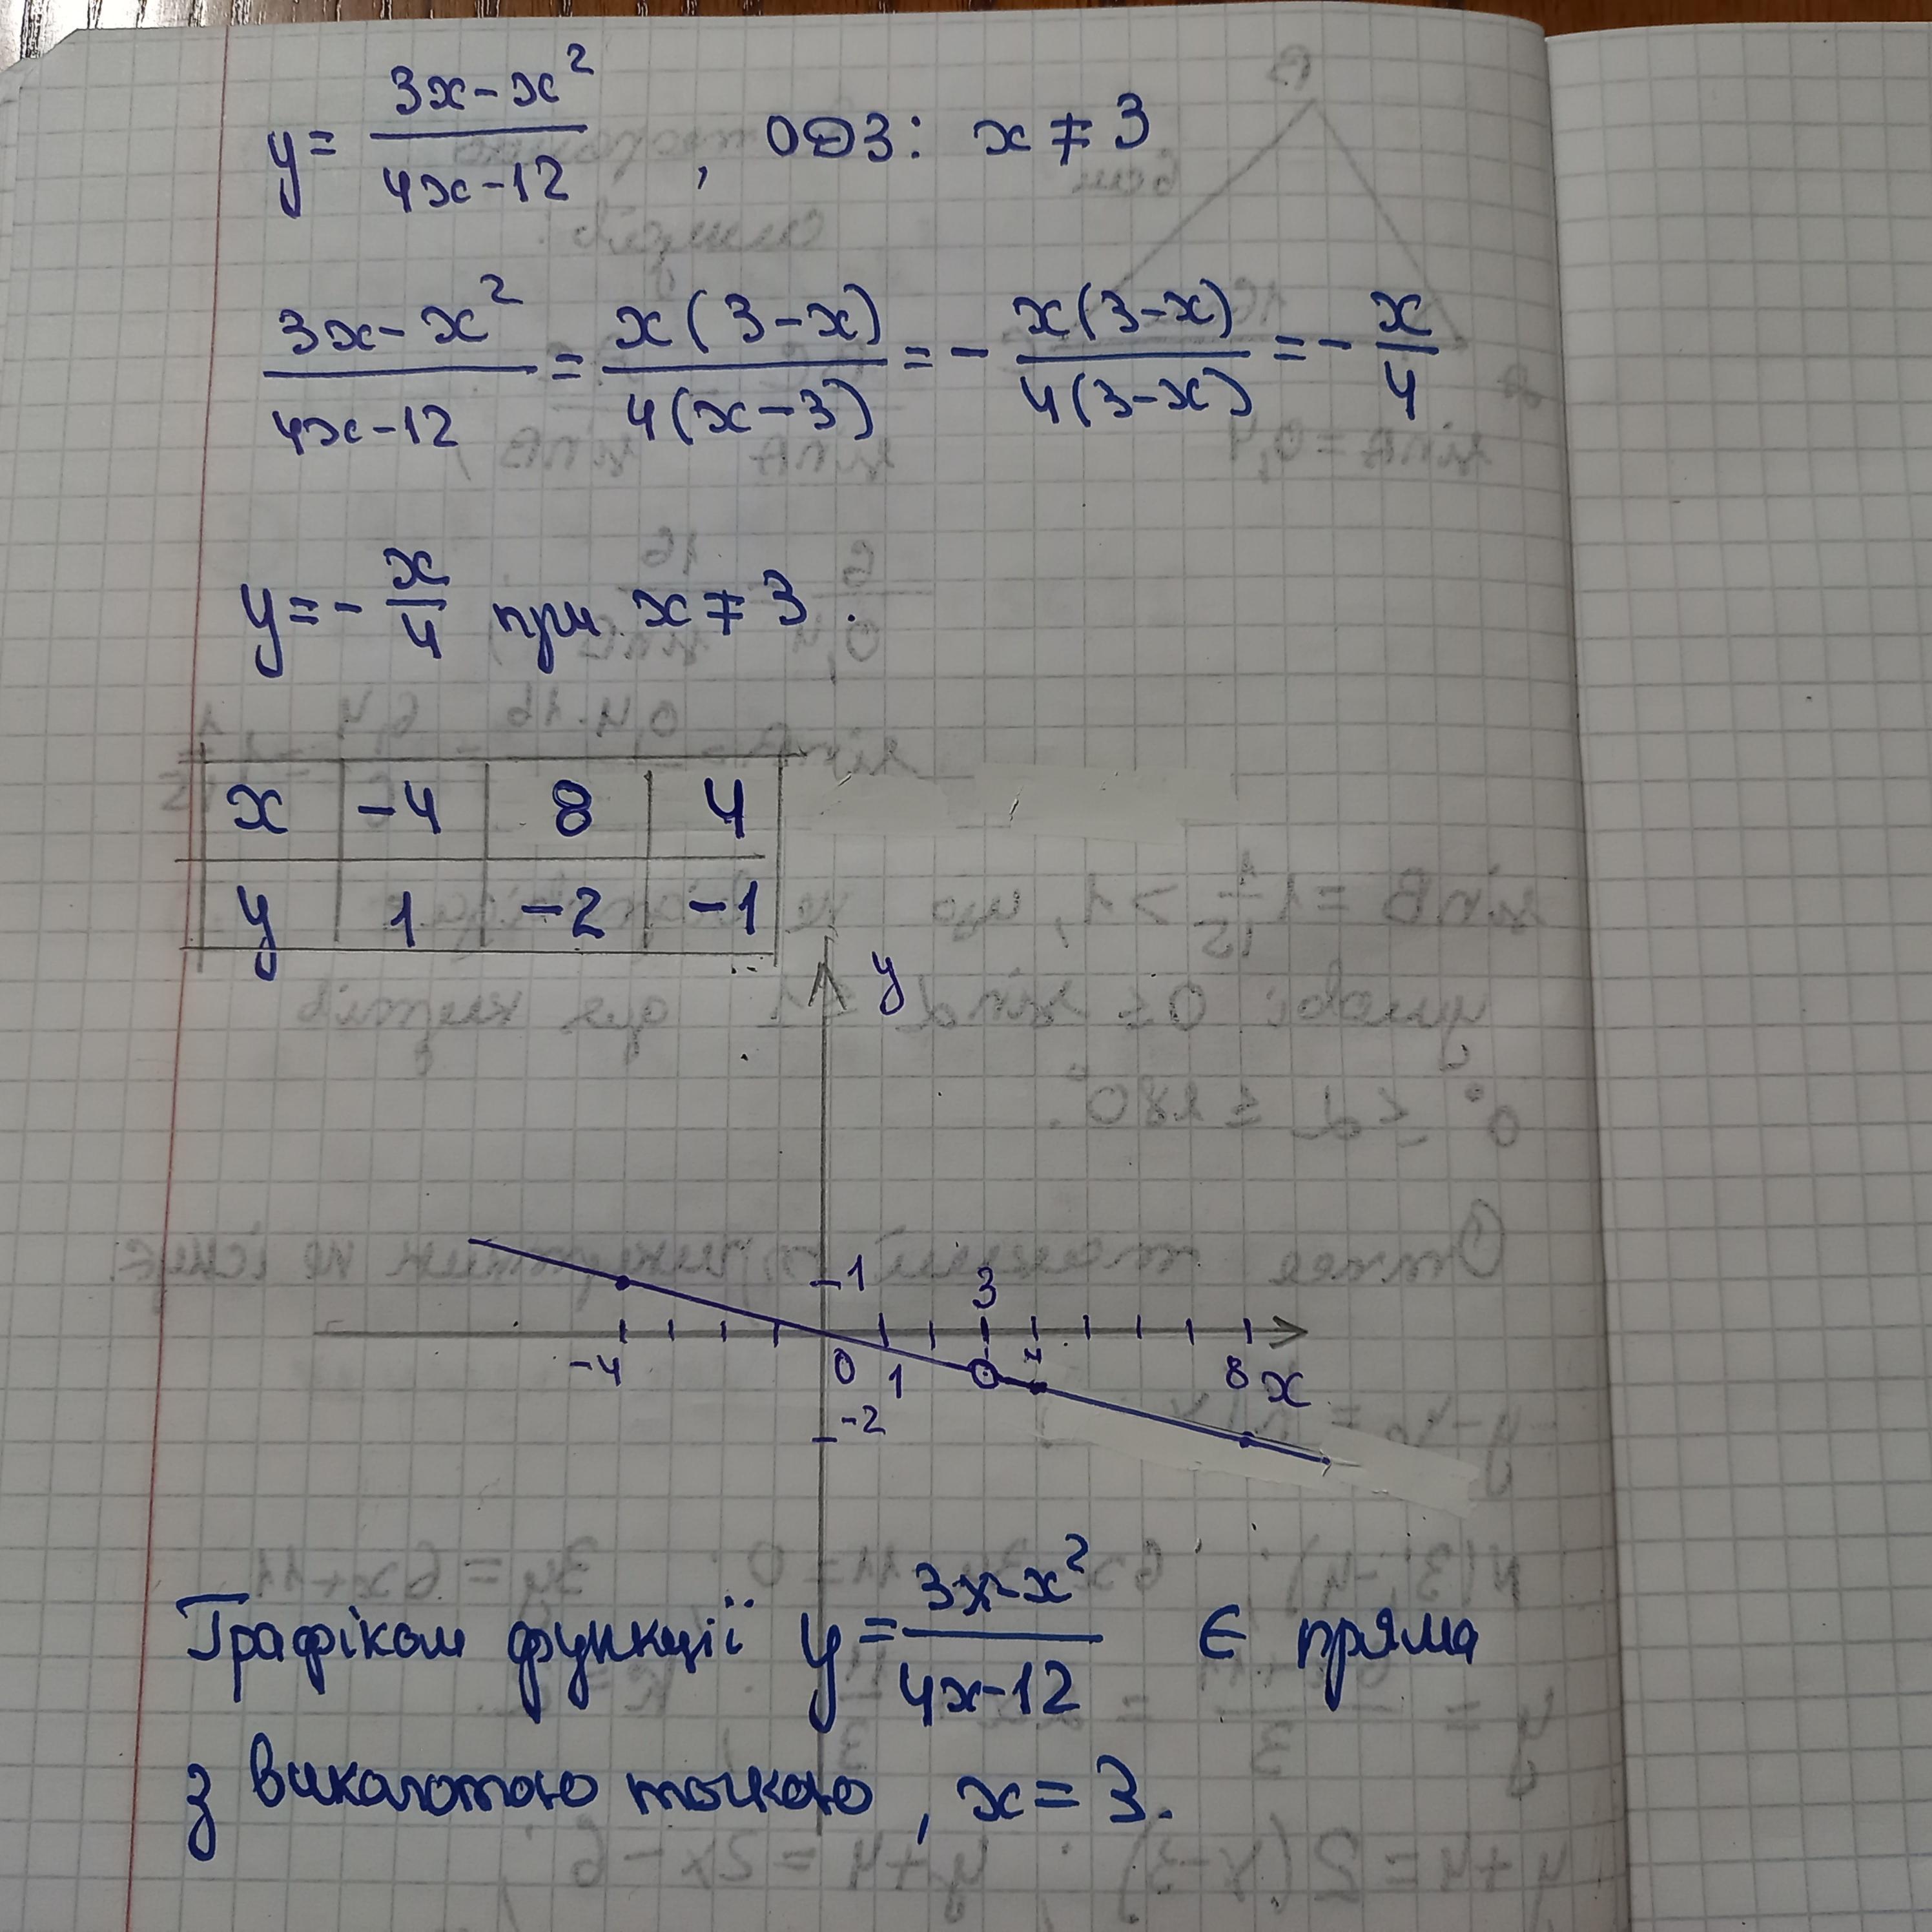 y = (3x - x²)/(4x - 12) , ОДЗ: x ≠ 3
(3x - x²)/(4x - 12) = x(3 - x)/4(x - 3) = - x(3 - x)/4(3 - x) = - x/4
y = - x/4 при x ≠ 3.
x -4 8 4
y 1 -2 -1
y
1 3
-4 0 1 4 8 x
-2
Графіком функції y = (3x - x²)/(4x - 12) є пряма
з виколотою точкою, x = 3.